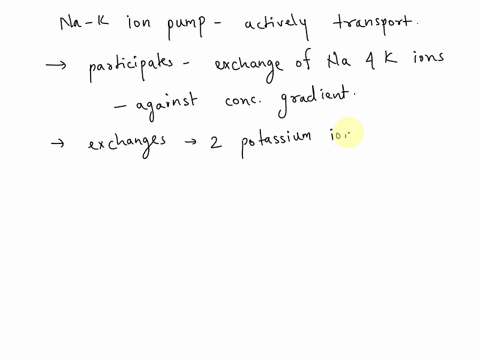 Na-K ion pump - actively transport.
→ participates - exchange of Na & K ions
- against conc. gradient.
→ exchanges → 2 potassium ion